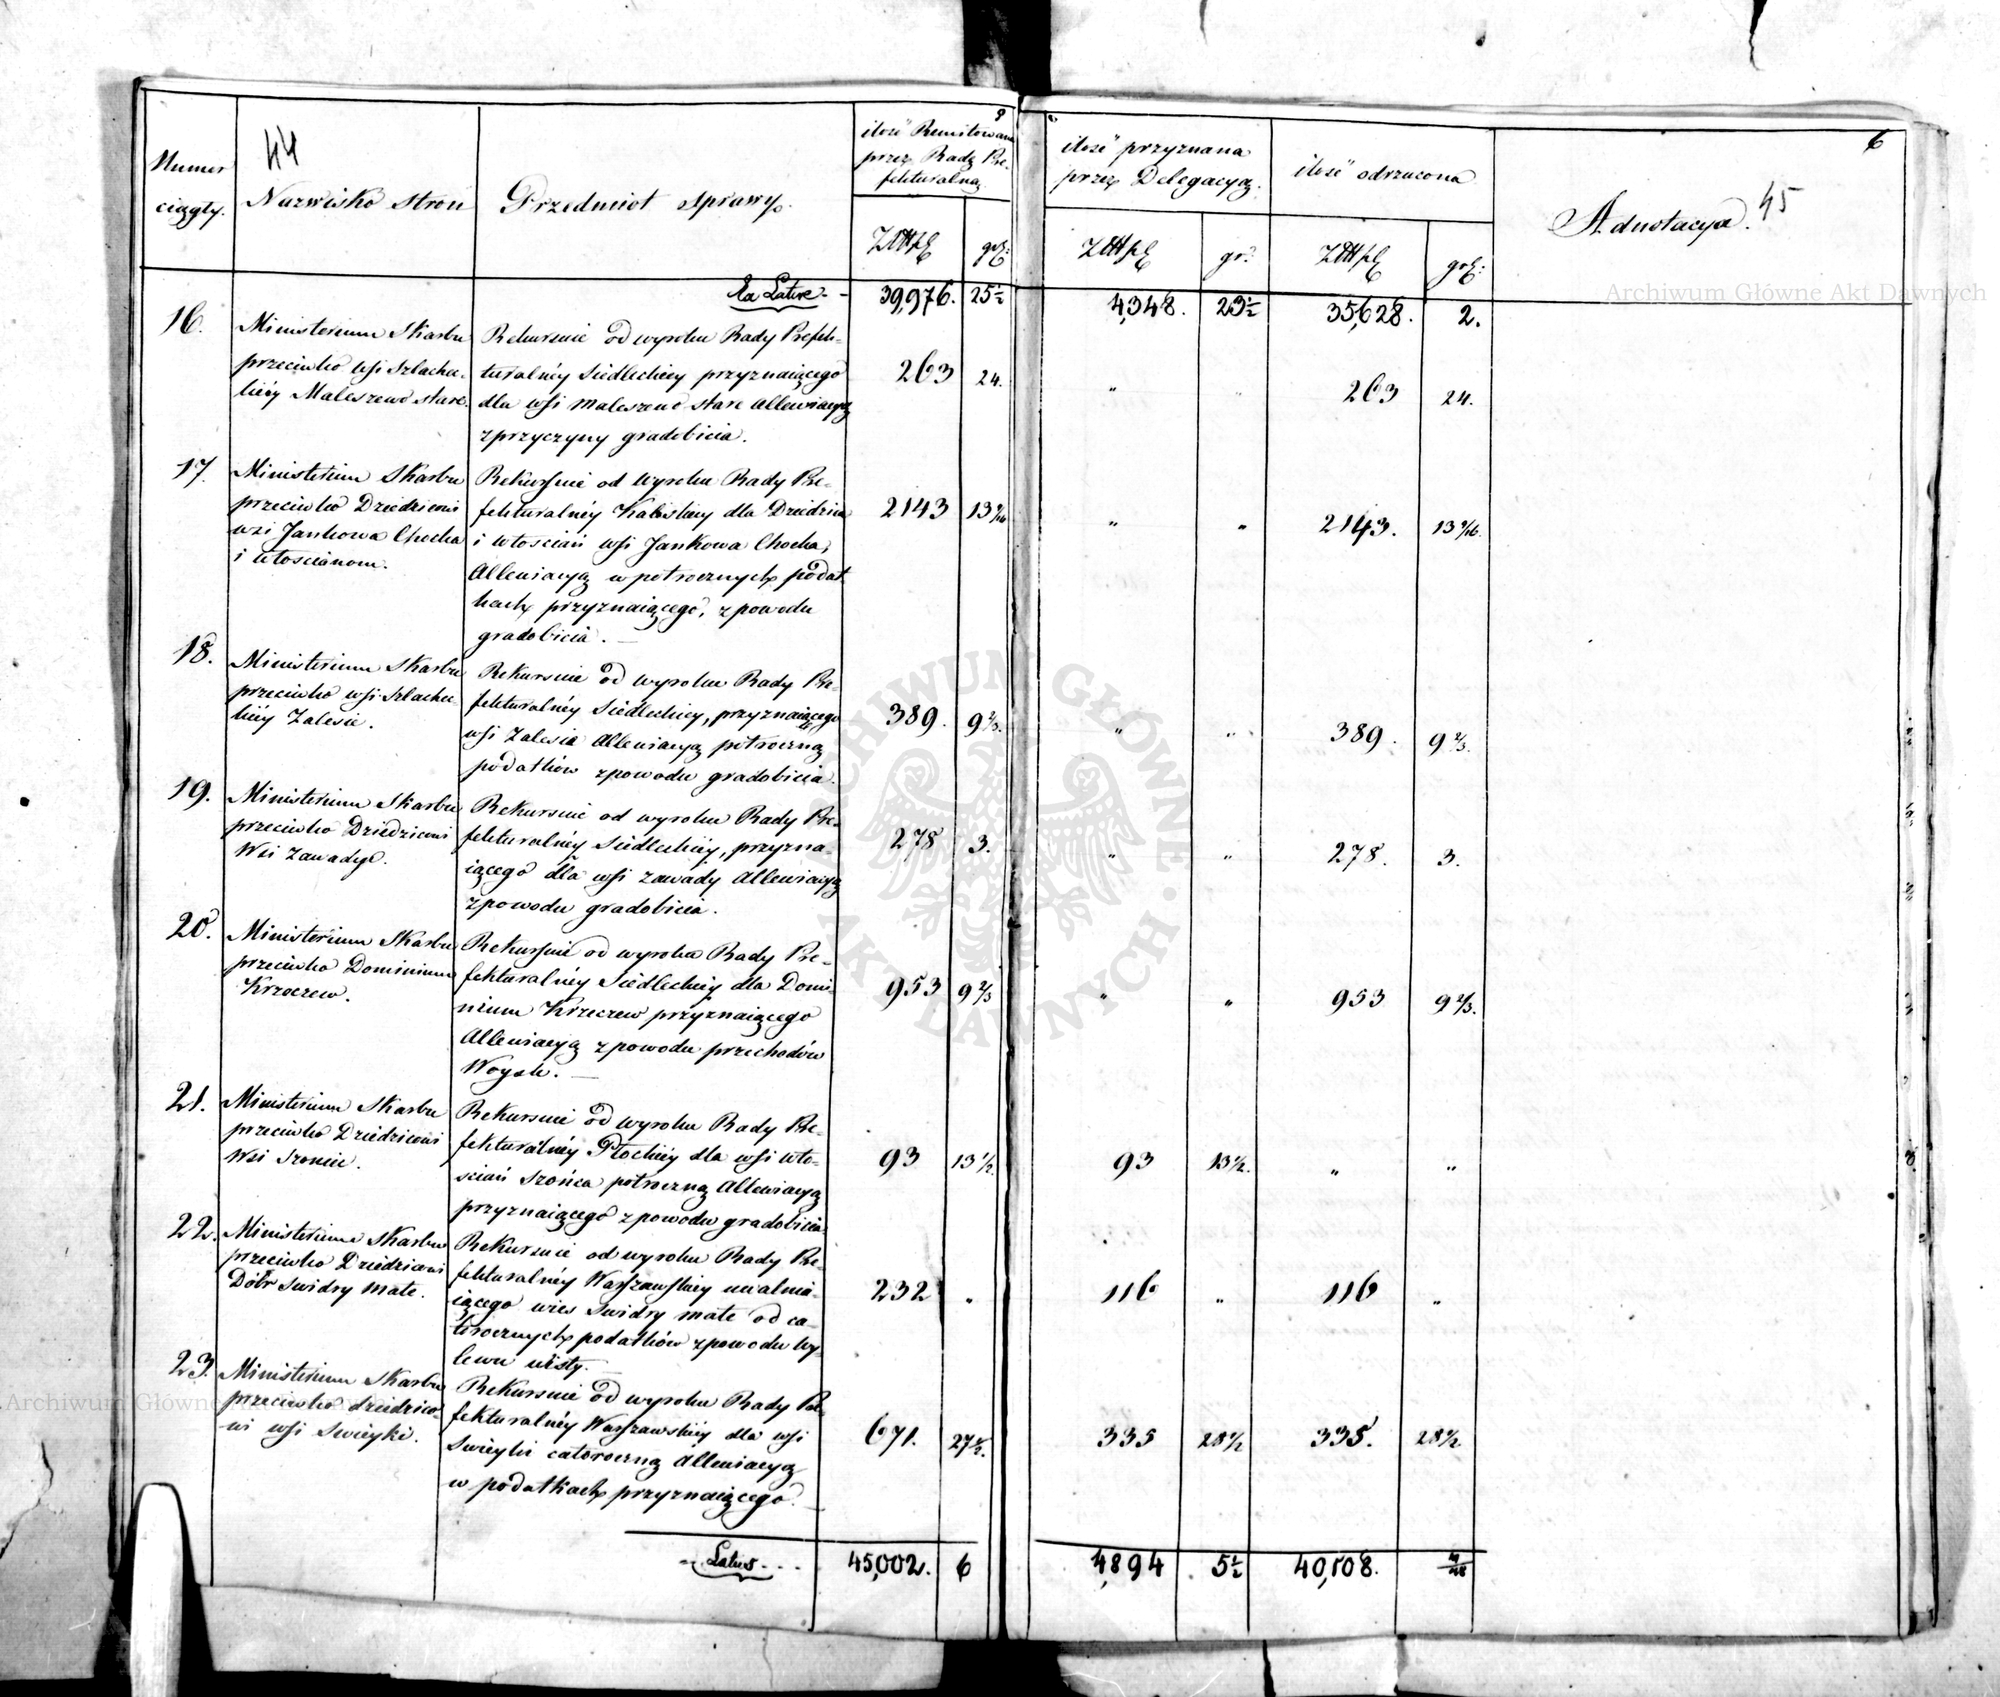 44
6
45
Numer
ciągły.
Nazwisko stron
Przedmiot sprawy.
ilość Remitowana
przez Radę Pre-
fekturalną
Złłpl
gr:
ilość przyznana
przez Delegacyą.
Złłpl
gr:
ilość odrzucona
Złłpl
gr:
Adnotacya.
Ex Latere - -
39,976. 25½
4,348. 23½
35,628. 2.
16.
Ministerium Skarbu
przeciwko wsi szlachec-
kiéy Maleszewo stare.
Rekursuie od wyroku Rady Prefek-
turalnéy Siedleckiey przyznaiącego
dla wsi Maleszewo stare allewiacyą
z przyczyny gradobicia.
263 24.
" "
263 24.
17.
Ministerium Skarbu
przeciwko Dziedzicowi
wsi Jankowa Chocka
i włościanom.
Rekursuie od wyroku Rady Pre-
fekturalnéy Kaliskiey dla Dziedzica
i włościan wsi Jankowa Chocka,
Allewiacyą w półrocznych podat
kach przyznaiącego, z powodu
gradobicia. —
2143 13
" "
2143. 13
18.
Ministerium Skarbu
przeciwko wsi szlachec-
kiéy Zalesie.
Rekursuie od wyroku Rady Pre-
fekturalnéy Siedleckiey, przyznaiącego
wsi Zalesie allewiacyą półroczną
podatków z powodu gradobicia.
389. 9 2/3.
" "
389. 9 2/3.
19.
Ministerium Skarbu
przeciwko Dziedzicowi
Wsi Zawady.
Rekursuie od wyroku Rady Pre-
fekturalnéy Siedleckiéy, przyzna-
iącego dla wsi Zawady allewiacyą
z powodu gradobicia.
278 3.
" "
278. 3.
20.
Ministerium Skarbu
przeciwko Dominium
Krzeczew.
Rekursuie od wyroku Rady Pre-
fekturalnéy Siedleckiéy dla Domi-
nium Krzeczew przyznaiącego
Allewiacyą z powodu przechodów
Woysk. —
953 9 2/3
" "
953 9 2/3.
21.
Ministerium Skarbu
przeciwko Dziedzicowi
Wsi Srońce.
Rekursuie od wyroku Rady Pre-
fekturalnéy Płockiéy dla wsi wło-
ścian Srońca półroczną allewiacyą
przyznaiącego z powodu gradobicia.
93 13½
93 13½.
" "
22.
Ministerium Skarbu
przeciwko Dziedzicowi
Dóbr Swidry małe.
Rekursuie od wyroku Rady Pre-
fekturalnéy Warszawskiéy uwalnia-
iącego wieś Swidry małe od ca-
łorocznych podatków z powodu wy-
lewu wisły. —
232 "
116 "
116 "
23.
Ministerium Skarbu
przeciwko dziedzico-
wi wsi Swieyki.
Rekursuie od wyroku Rady Pre-
fekturalnéy Warszawskiéy dla wsi
Swieyki całoroczną allewiacyą
w podatkach przyznaiącego. —
671. 27½.
335 28½
335. 28½
- Latus - . .
45,002. 6
4,894 5½
40,108.
Archiwum Główne Akt Dawnych
Archiwum Główne
ARCHIWUM GŁÓWNE · AKT DAWNYCH ·